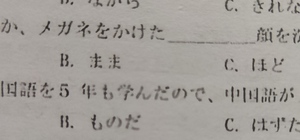 B. ながら C. きれな
か、メガネをかけた＿＿＿＿顔を洗
B. まま C. ほど
国語を5年も学んだので、中国語が
B. ものだ C. はずだ